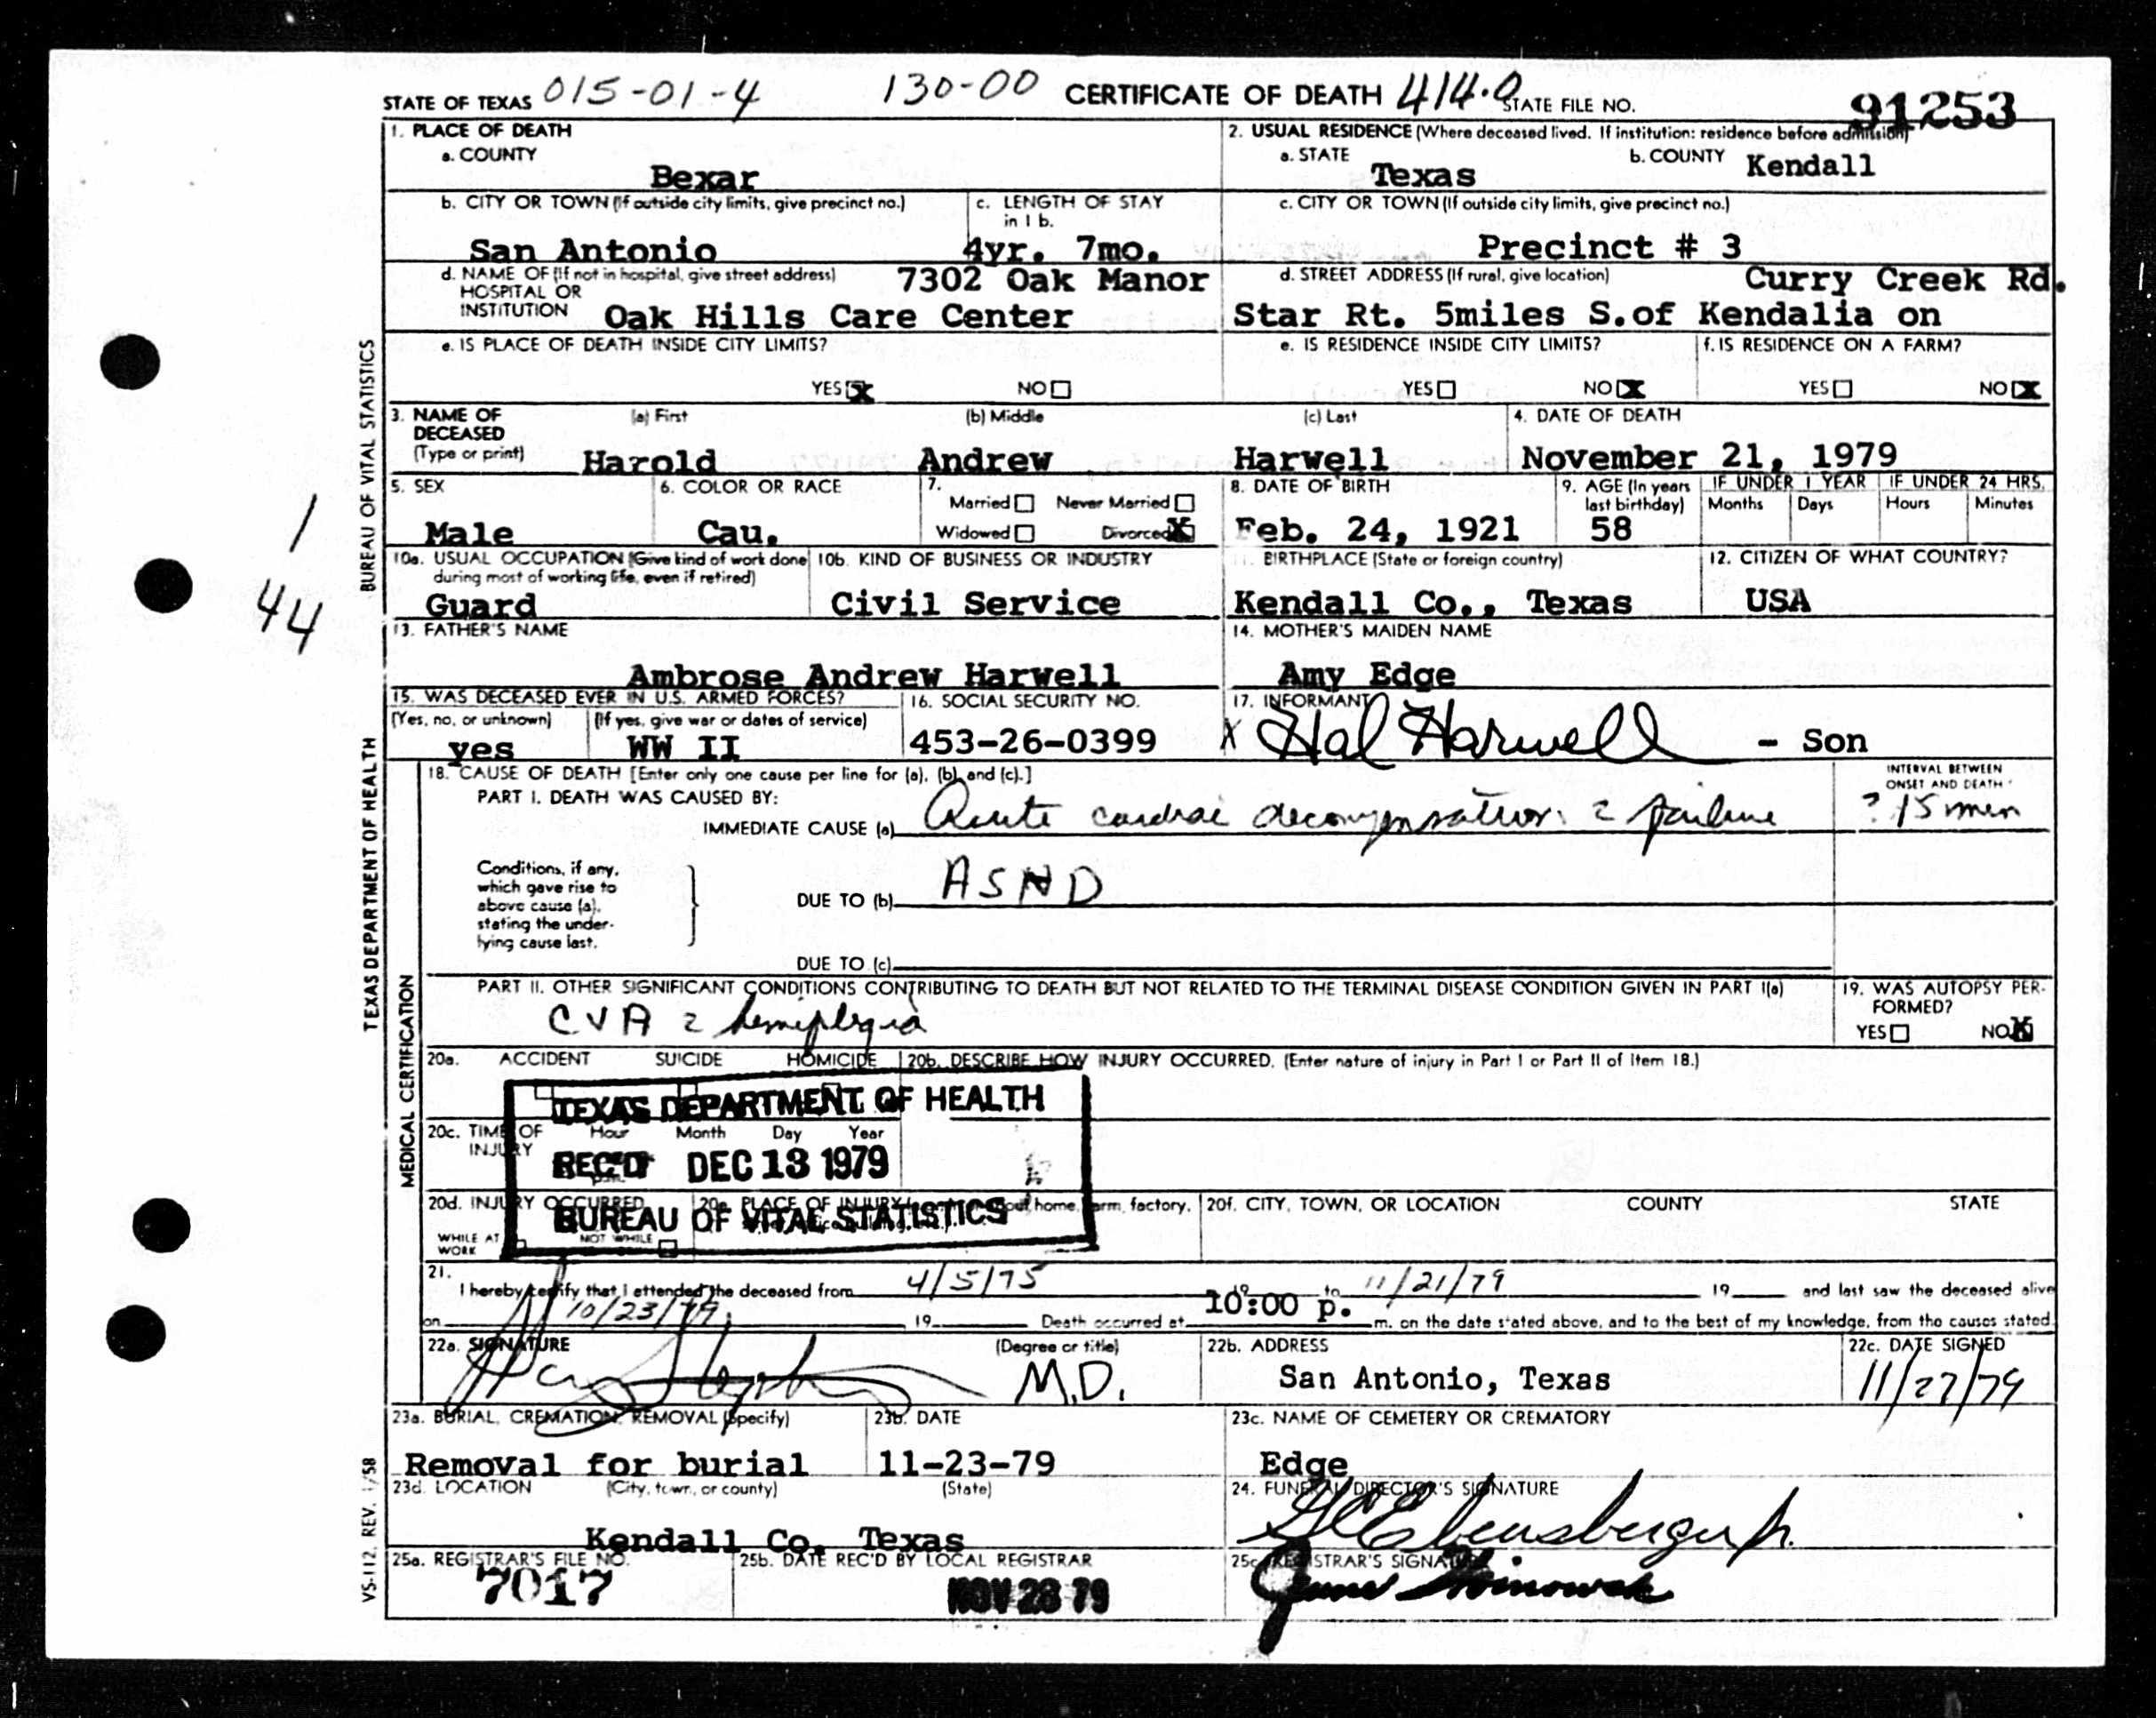 STATE OF TEXAS 015-01-4 130-00 CERTIFICATE OF DEATH 414.0 STATE FILE NO. 91253
1. PLACE OF DEATH
a. COUNTY
Bexar
2. USUAL RESIDENCE (Where deceased lived. If institution: residence before admission)
a. STATE
Texas
b. COUNTY Kendall
b. CITY OR TOWN (If outside city limits, give precinct no.)
San Antonio
c. LENGTH OF STAY
in 1 b.
4yr. 7mo.
c. CITY OR TOWN (If outside city limits, give precinct no.)
Precinct # 3
d. NAME OF (If not in hospital, give street address) 7302 Oak Manor
HOSPITAL OR
INSTITUTION Oak Hills Care Center
d. STREET ADDRESS (If rural, give location) Curry Creek Rd.
Star Rt. 5miles S.of Kendalia on
e. IS PLACE OF DEATH INSIDE CITY LIMITS?
YES X NO
e. IS RESIDENCE INSIDE CITY LIMITS?
YES NO X
f. IS RESIDENCE ON A FARM?
YES NO X
3. NAME OF
DECEASED
(Type or print)
(a) First
Harold
(b) Middle
Andrew
(c) Last
Harwell
4. DATE OF DEATH
November 21, 1979
5. SEX
Male
6. COLOR OR RACE
Cau.
7.
Married Never Married
Widowed Divorced X
8. DATE OF BIRTH
Feb. 24, 1921
9. AGE (In years
last birthday)
58
IF UNDER 1 YEAR
Months Days
IF UNDER 24 HRS.
Hours Minutes
10a. USUAL OCCUPATION (Give kind of work done
during most of working life, even if retired)
Guard
10b. KIND OF BUSINESS OR INDUSTRY
Civil Service
11. BIRTHPLACE (State or foreign country)
Kendall Co., Texas
12. CITIZEN OF WHAT COUNTRY?
USA
13. FATHER'S NAME
Ambrose Andrew Harwell
14. MOTHER'S MAIDEN NAME
Amy Edge
15. WAS DECEASED EVER IN U.S. ARMED FORCES?
(Yes, no, or unknown) (If yes, give war or dates of service)
yes WW II
16. SOCIAL SECURITY NO.
453-26-0399
17. INFORMANT
X Hal Harwell - Son
18. CAUSE OF DEATH [Enter only one cause per line for (a), (b), and (c).]
PART I. DEATH WAS CAUSED BY:
IMMEDIATE CAUSE (a) Acute cardiac decompensation c failure
INTERVAL BETWEEN
ONSET AND DEATH
? 15 min
Conditions, if any,
which gave rise to
above cause (a),
stating the under-
lying cause last.
DUE TO (b) ASHD
DUE TO (c)
PART II. OTHER SIGNIFICANT CONDITIONS CONTRIBUTING TO DEATH BUT NOT RELATED TO THE TERMINAL DISEASE CONDITION GIVEN IN PART I(a)
CVA c hemiplegia
19. WAS AUTOPSY PER-
FORMED?
YES NO X
20a. ACCIDENT SUICIDE HOMICIDE
20b. DESCRIBE HOW INJURY OCCURRED. (Enter nature of injury in Part I or Part II of Item 18.)
TEXAS DEPARTMENT OF HEALTH
REC'D DEC 13 1979
BUREAU OF VITAL STATISTICS
20c. TIME OF
INJURY
Hour Month Day Year
20d. INJURY OCCURRED
WHILE AT
WORK
NOT WHILE
20e. PLACE OF INJURY home, farm, factory,
20f. CITY, TOWN, OR LOCATION COUNTY STATE
21.
I hereby certify that I attended the deceased from 4/5/75 19 to 11/21/79 19 and last saw the deceased alive
on 10/23/79, 19 Death occurred at 10:00 p. m. on the date stated above, and to the best of my knowledge, from the causes stated.
22a. SIGNATURE
(Degree or title)
M.D.
22b. ADDRESS
San Antonio, Texas
22c. DATE SIGNED
11/27/79
23a. BURIAL, CREMATION, REMOVAL (Specify)
Removal for burial
23b. DATE
11-23-79
23c. NAME OF CEMETERY OR CREMATORY
Edge
23d. LOCATION (City, town, or county) (State)
Kendall Co. Texas
24. FUNERAL DIRECTOR'S SIGNATURE
25a. REGISTRAR'S FILE NO.
7017
25b. DATE REC'D BY LOCAL REGISTRAR
NOV 28 79
25c. REGISTRAR'S SIGNATURE
BUREAU OF VITAL STATISTICS
TEXAS DEPARTMENT OF HEALTH
MEDICAL CERTIFICATION
VS-112, REV. 1/58
1
44